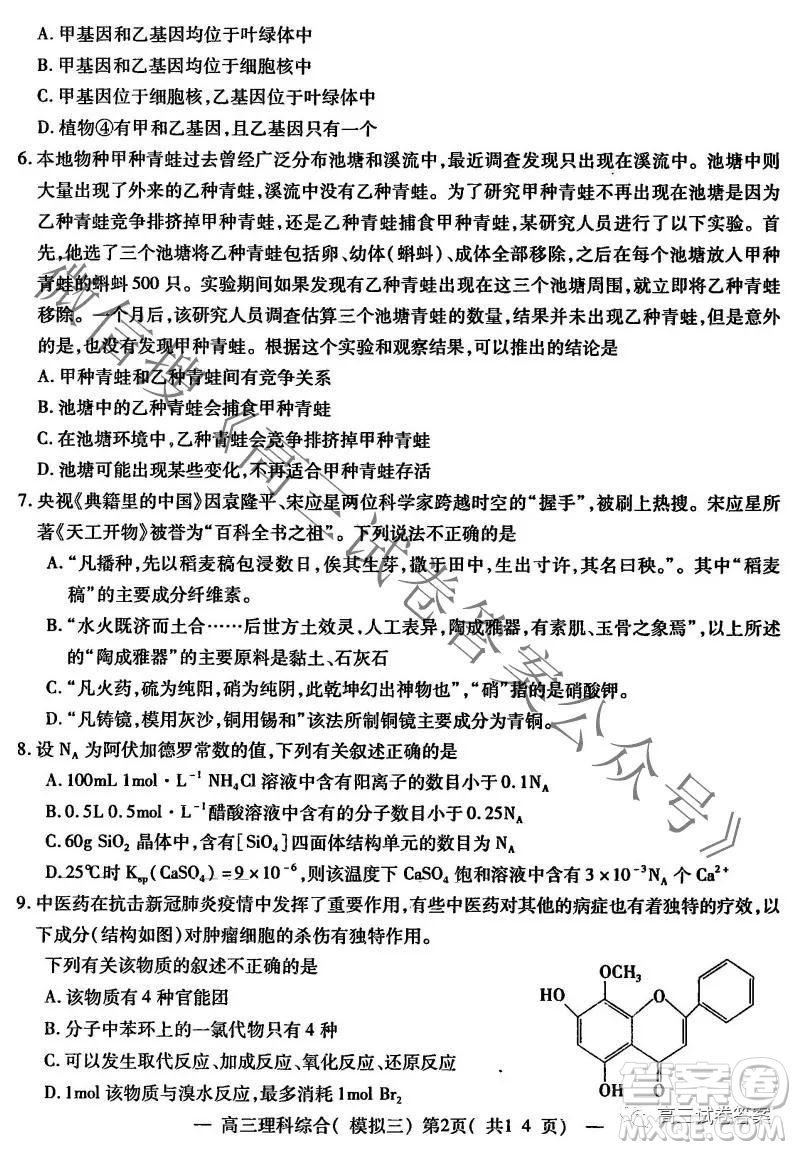 A. 甲基因和乙基因均位于叶绿体中
B. 甲基因和乙基因均位于细胞核中
C. 甲基因位于细胞核,乙基因位于叶绿体中
D. 植物④有甲和乙基因,且基因只有一个
6. 本地物种甲种青蛙过去曾经广泛分布池塘和溪流中,最近调查发现只出现在溪流中。池塘中则
大量出现了外来的乙种青蛙,溪流中没有乙种青蛙。为了研究甲种青蛙不再出现在池塘是因为
乙种青蛙竞争排挤掉甲种青蛙,还是乙种青蛙捕食甲种青蛙,某研究人员进行了以下实验。首
先,他选了三个池塘将乙种青蛙包括卵、幼体(蝌蚪)、成体全部移除,在每个池塘放入甲种
青蛙的蝌蚪500只。实验期间如果发现有乙种青蛙出现在这三个池塘周围,就立即将乙种青蛙
移除。一个月后,该研究人员调查估算三个池塘青蛙的数量,结果并未出现乙种青蛙,但不幸
的是,也没有发现甲种青蛙。根据这个实验和观察结果,可以推出的结论是
A. 甲种青蛙和乙种青蛙间有竞争关系
B. 池塘中的乙种青蛙会捕食甲种青蛙
C. 在池塘环境中,乙种青蛙会竞争排挤掉甲种青蛙
D. 池塘可能出现了某些变化,不再适合甲种青蛙存活
7. 央视《典籍里的中国》因袁隆平、宋应星两位科学家跨越时空的“握手”,被刷上热搜。宋应星所
著《天工开物》被誉为“百科全书之祖”。下列说法不正确的是
A. “凡播种,先以稻麦稿包浸数日,俟其生芽,撒于田中,生出寸许,其名曰秧。”。其中“稻麦
稿”的主要成分纤维素。
B. “水火既济而土合……后世方土效灵,人工表异,陶成雅器,有素肌、玉骨之象焉”,以上所述
的“陶成雅器”的主要原料是黏土、石灰石
C. “凡火药,硫为纯阳,硝为纯阴,此乾坤幻出神物也”,“硝”指的是硝酸钾。
D. “凡铸镜,模用灰沙,铜用锡和”该法所制铜镜主要成分为青铜。
8. 设 N_A 为阿伏加德罗常数的值,下列有关叙述正确的是
A. 100mL 1mol·L⁻¹ NH₄Cl 溶液中含有阳离子的数目小于 0.1N_A
B. 0.5L 0.5mol·L⁻¹醋酸溶液中含有的分子数目小于 0.25N_A
C. 60g SiO₂ 晶体中,含有[SiO₄]四面体结构单元的数目为 N_A
D. 25℃时 K_sp(CaSO₄) = 9×10⁻⁶,则该温度下 CaSO₄ 饱和溶液中含有 3×10⁻³N_A 个 Ca²⁺
9. 中医药在抗击新冠肺炎疫情中发挥了重要作用,有些中医药对其他的病症也有着独特的疗效,以
下成分(结构如图)对肿瘤细胞的杀伤有独特作用。
下列有关该物质的叙述不正确的是
A. 该物质有 4 种官能团
B. 分子中苯环上的一氯代物只有 4 种
C. 可以发生取代反应、加成反应、氧化反应、还原反应
D. 1mol 该物质与溴水反应,最多消耗 1mol Br₂
OCH₃
HO
O
OH
O
— 高三理科综合( 模拟三) 第2页( 共1 4 页) —
微信搜《高三试卷答案公众号》
答案卷
高三试卷答案